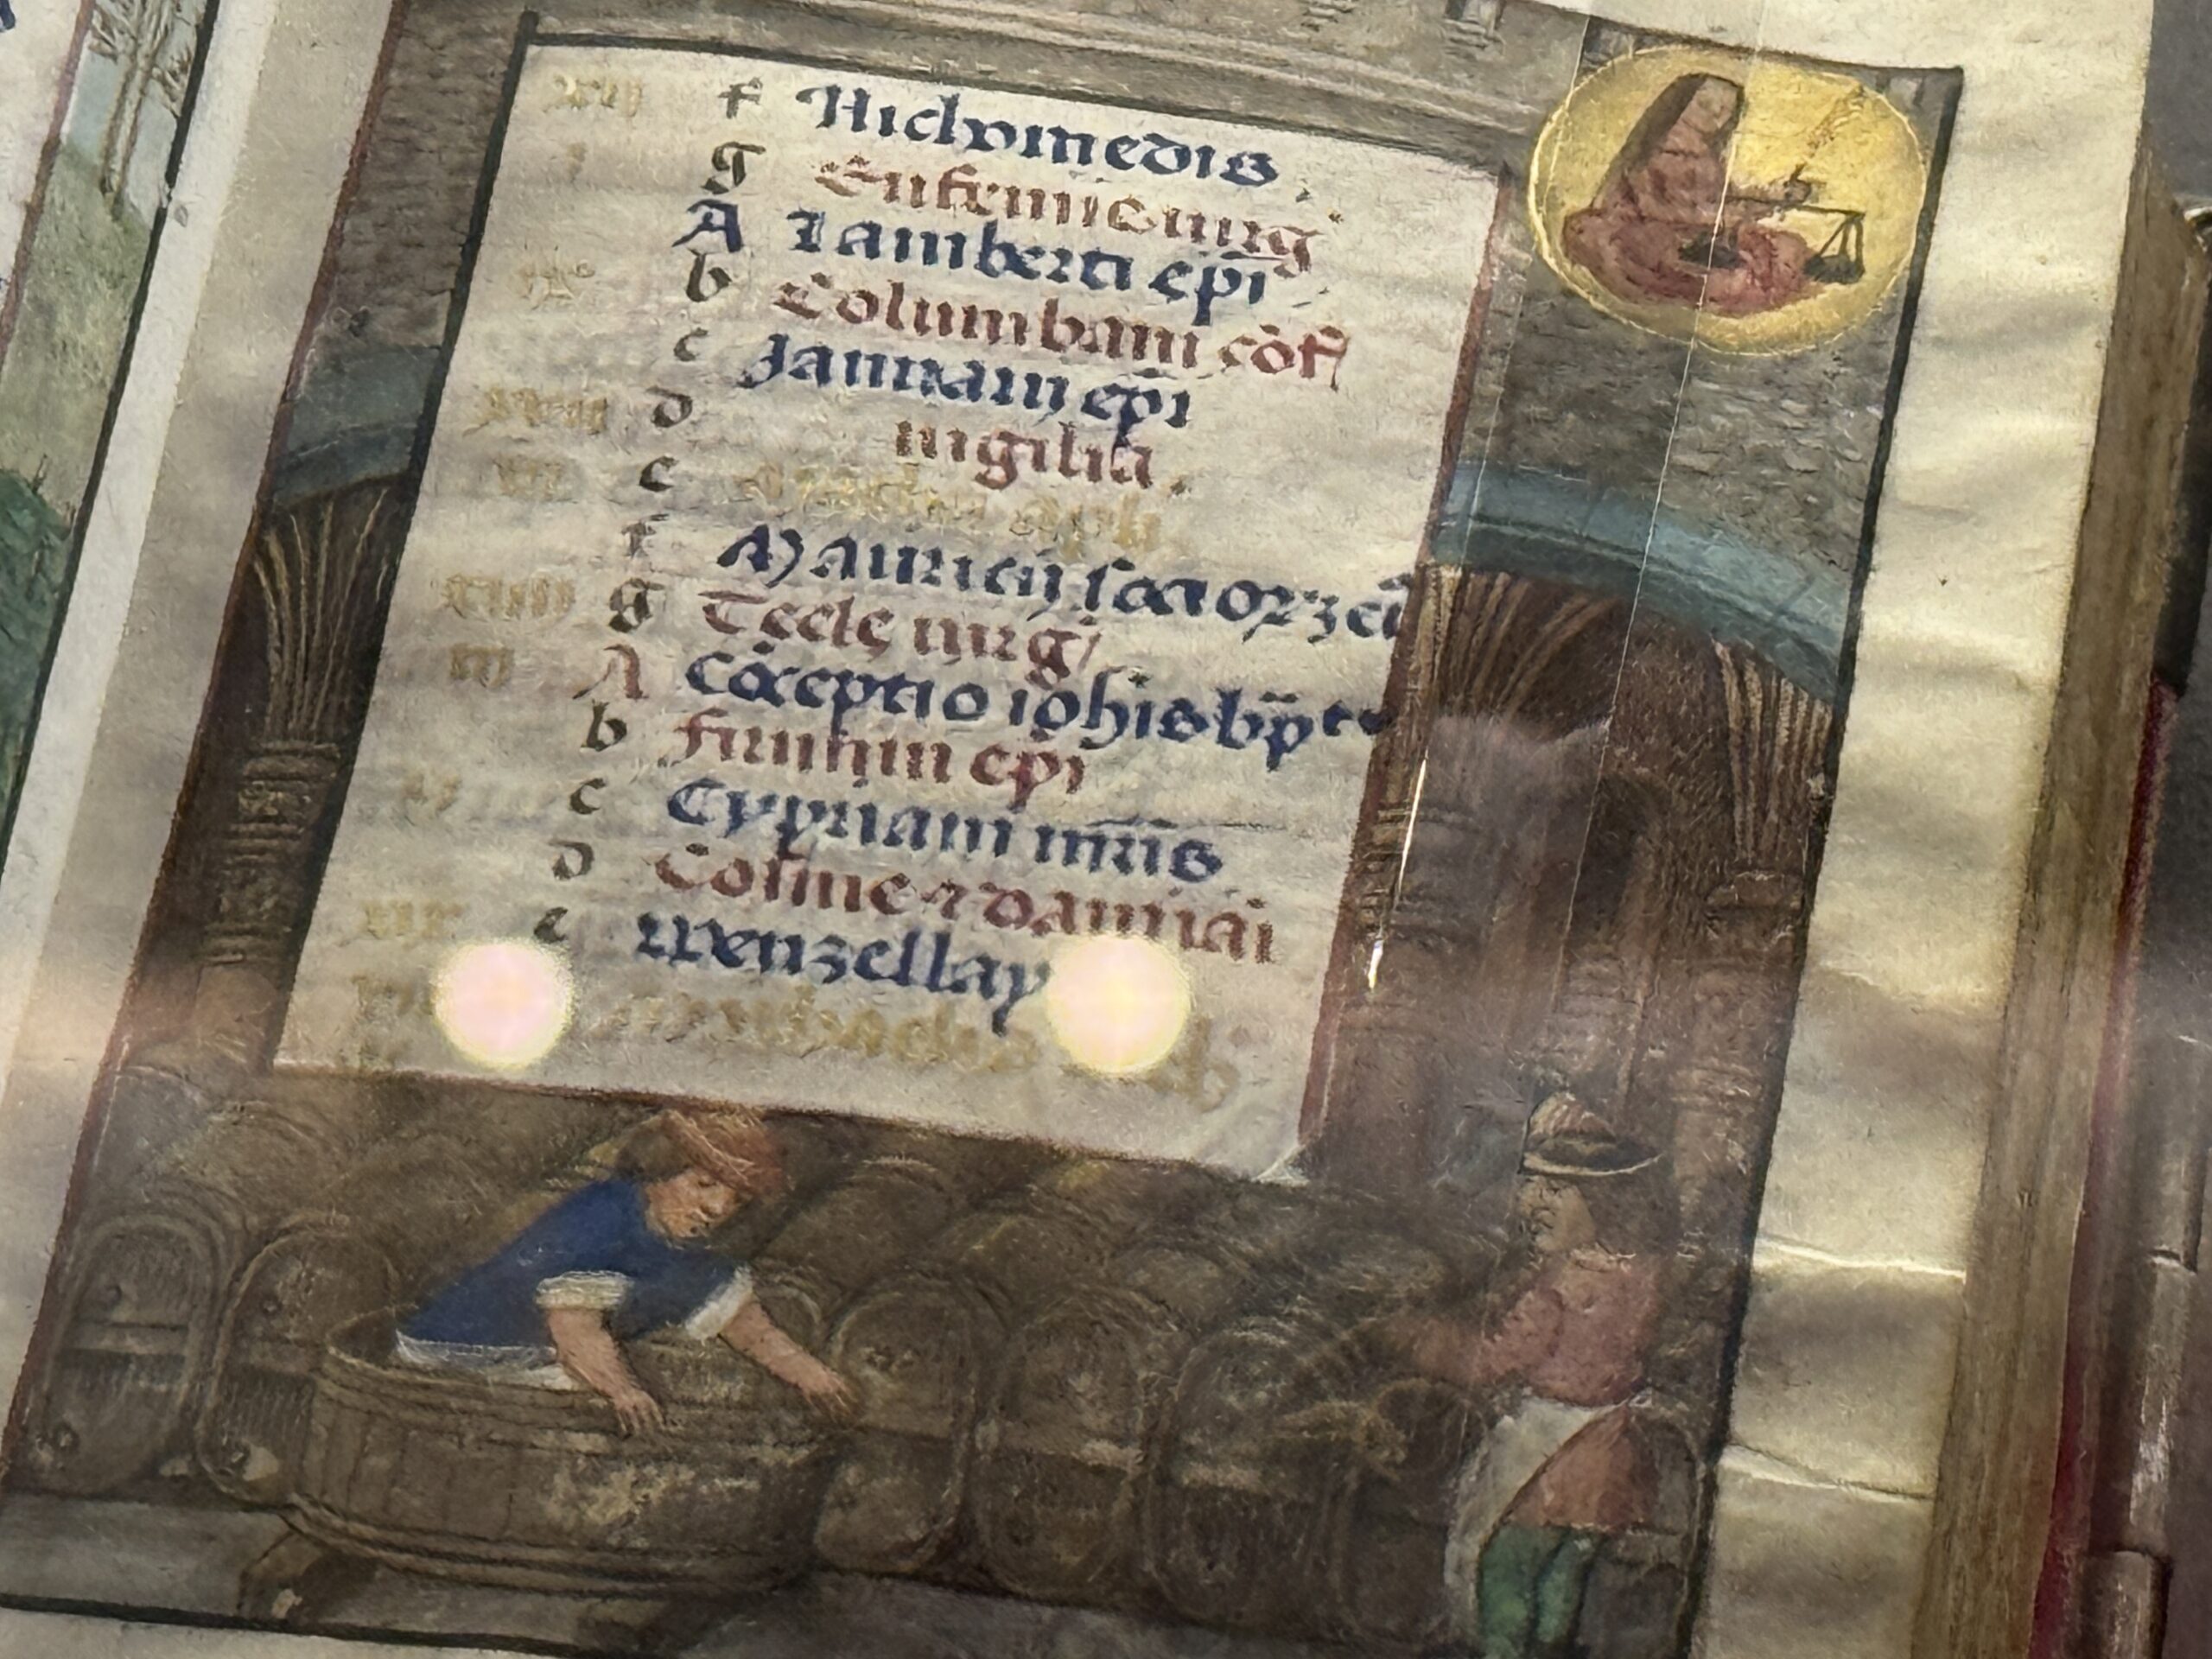 xvii f Nichomedis
i g Eufemie virg
A Lamberti epī
b Columbani cōf
c Januarii epī
d vigilia
e Mathei apli
f Mauricii socior⁊ eiꝰ
g Tecle virg
iii A Cōceptio iohis bp̄te
b firmini epi
c Cypriani mr̄is
d Cosme ⁊ damiāi
e Wenzellay